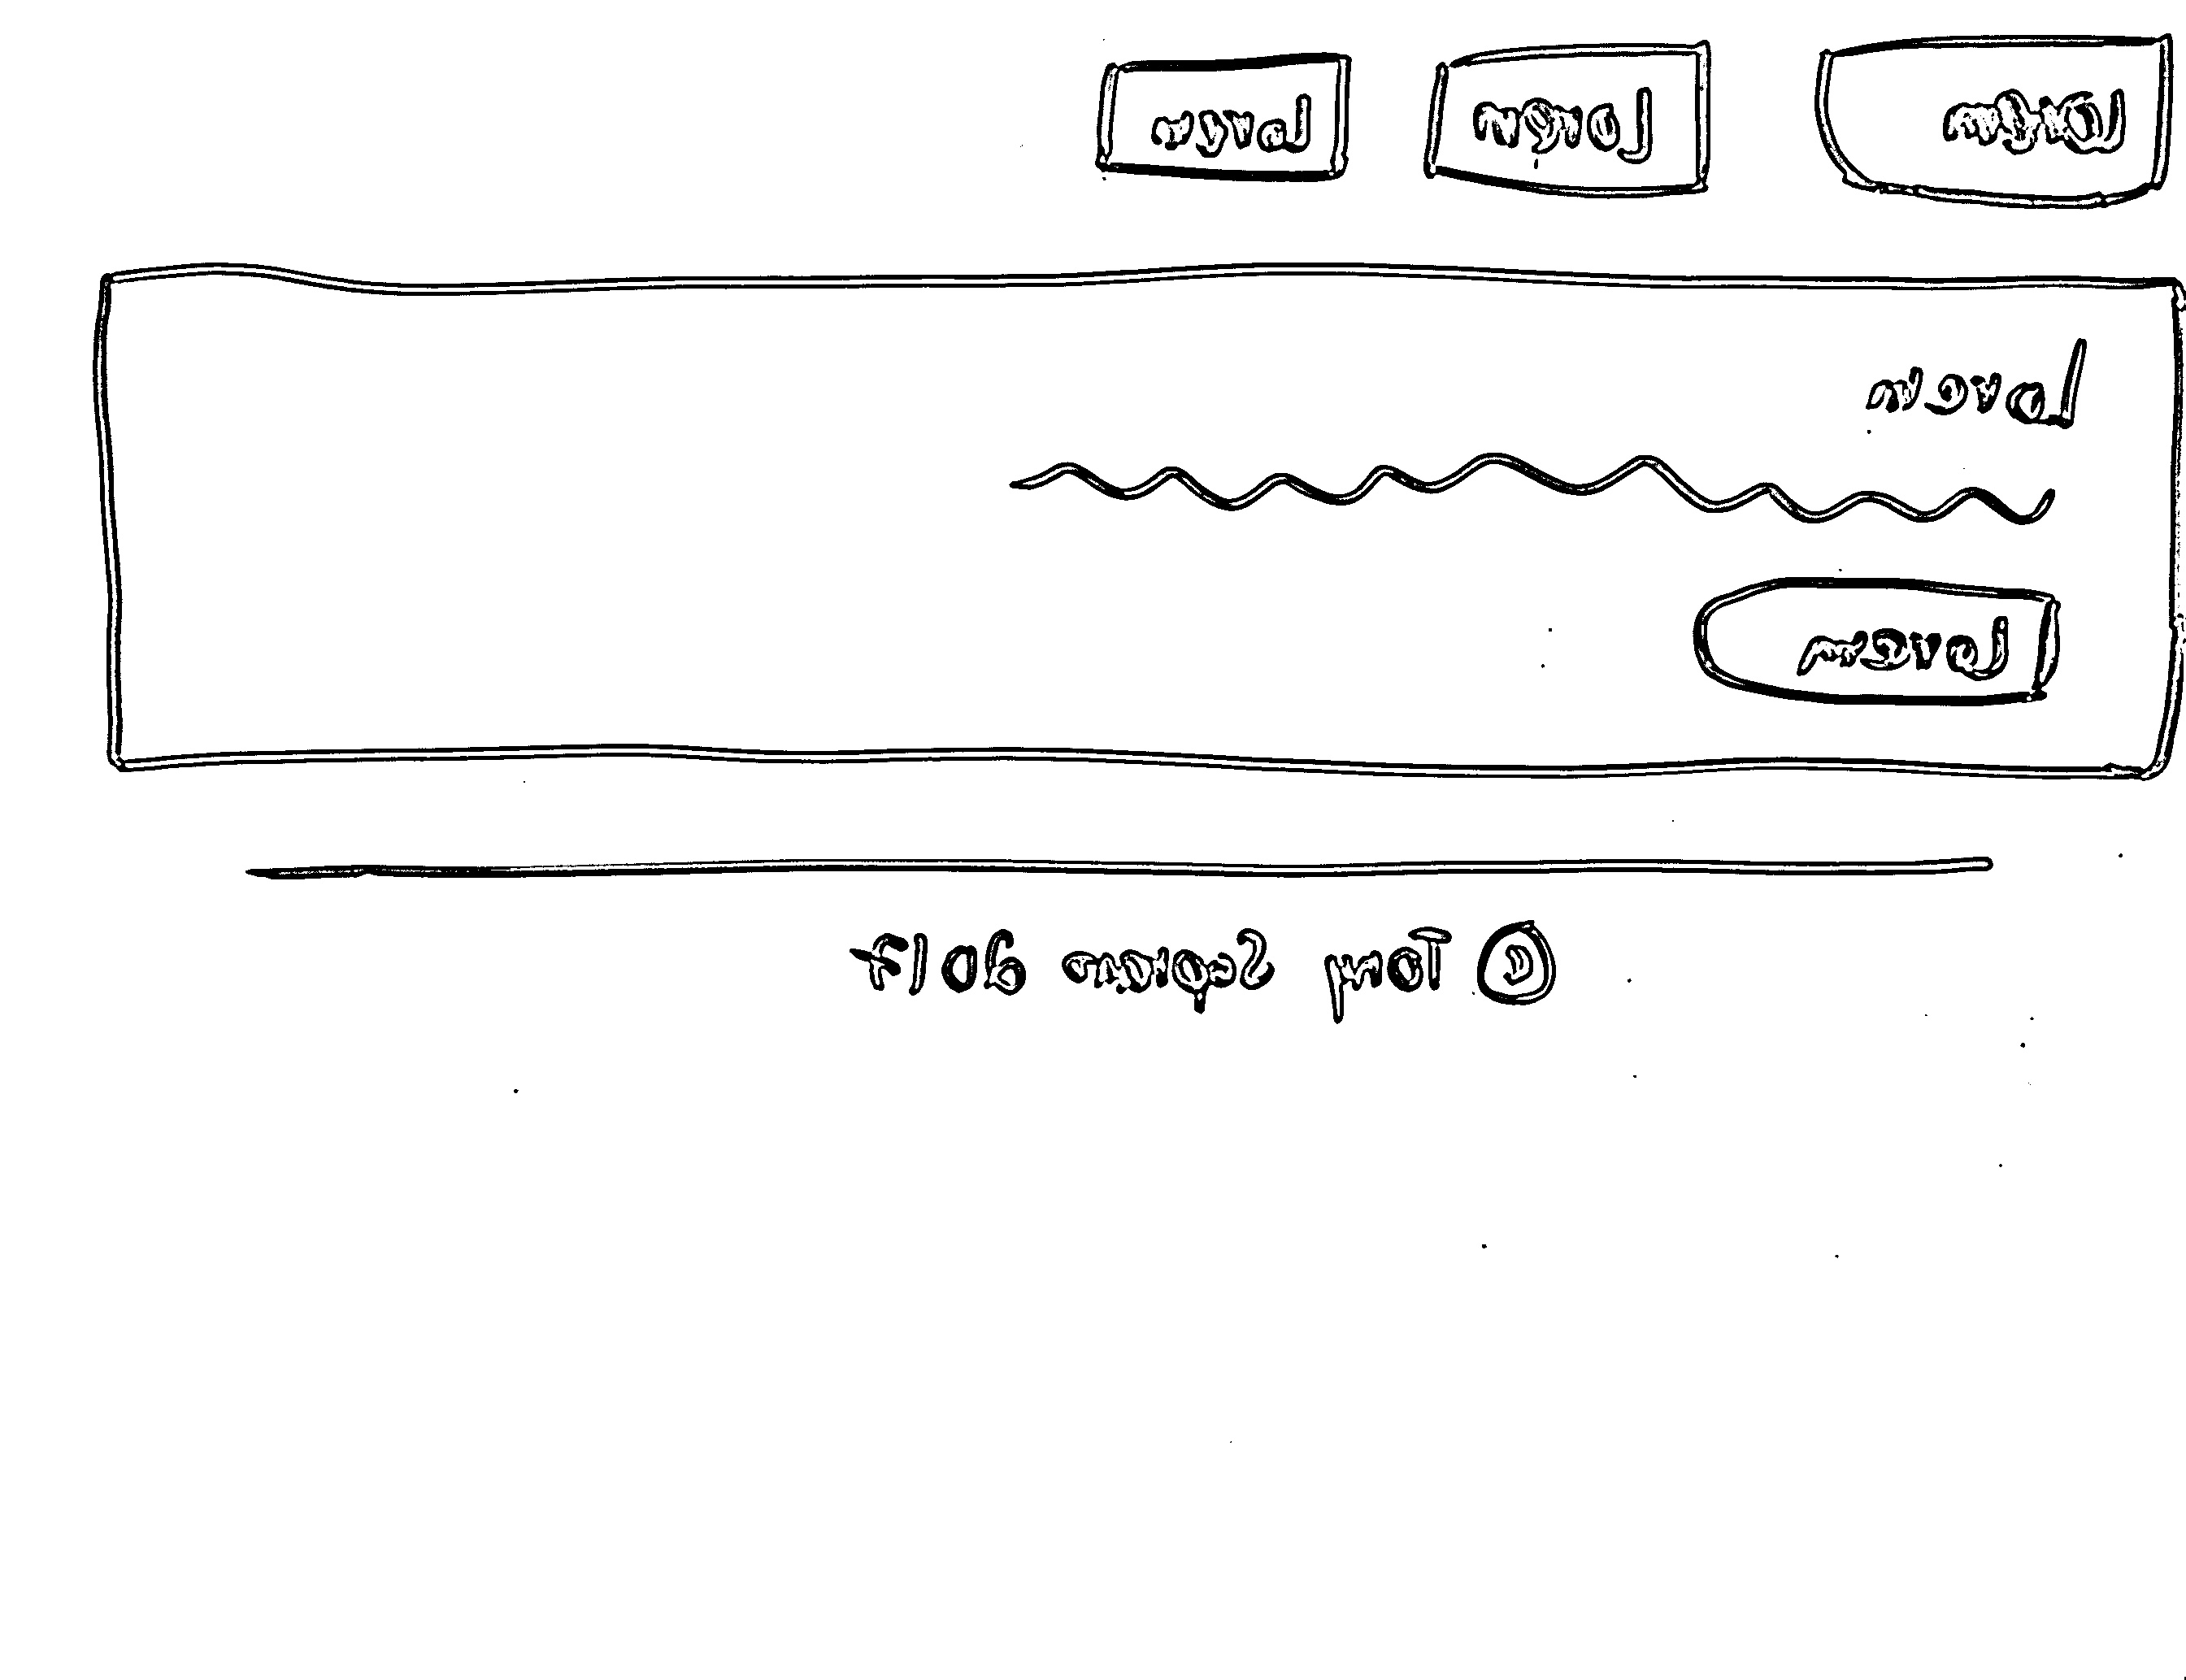 Lorem Lorem Lorem
Lorem
Lorem
© Tony Squama 2017